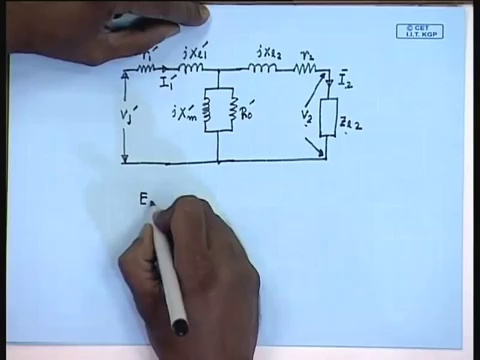 © CET
I.I.T. KGP
r₁′ jXℓ₁′ jxℓ₂ r₂
I₁′ Ī₂
V₁′ jX′m R₀′ V₂ Zℓ₂
E